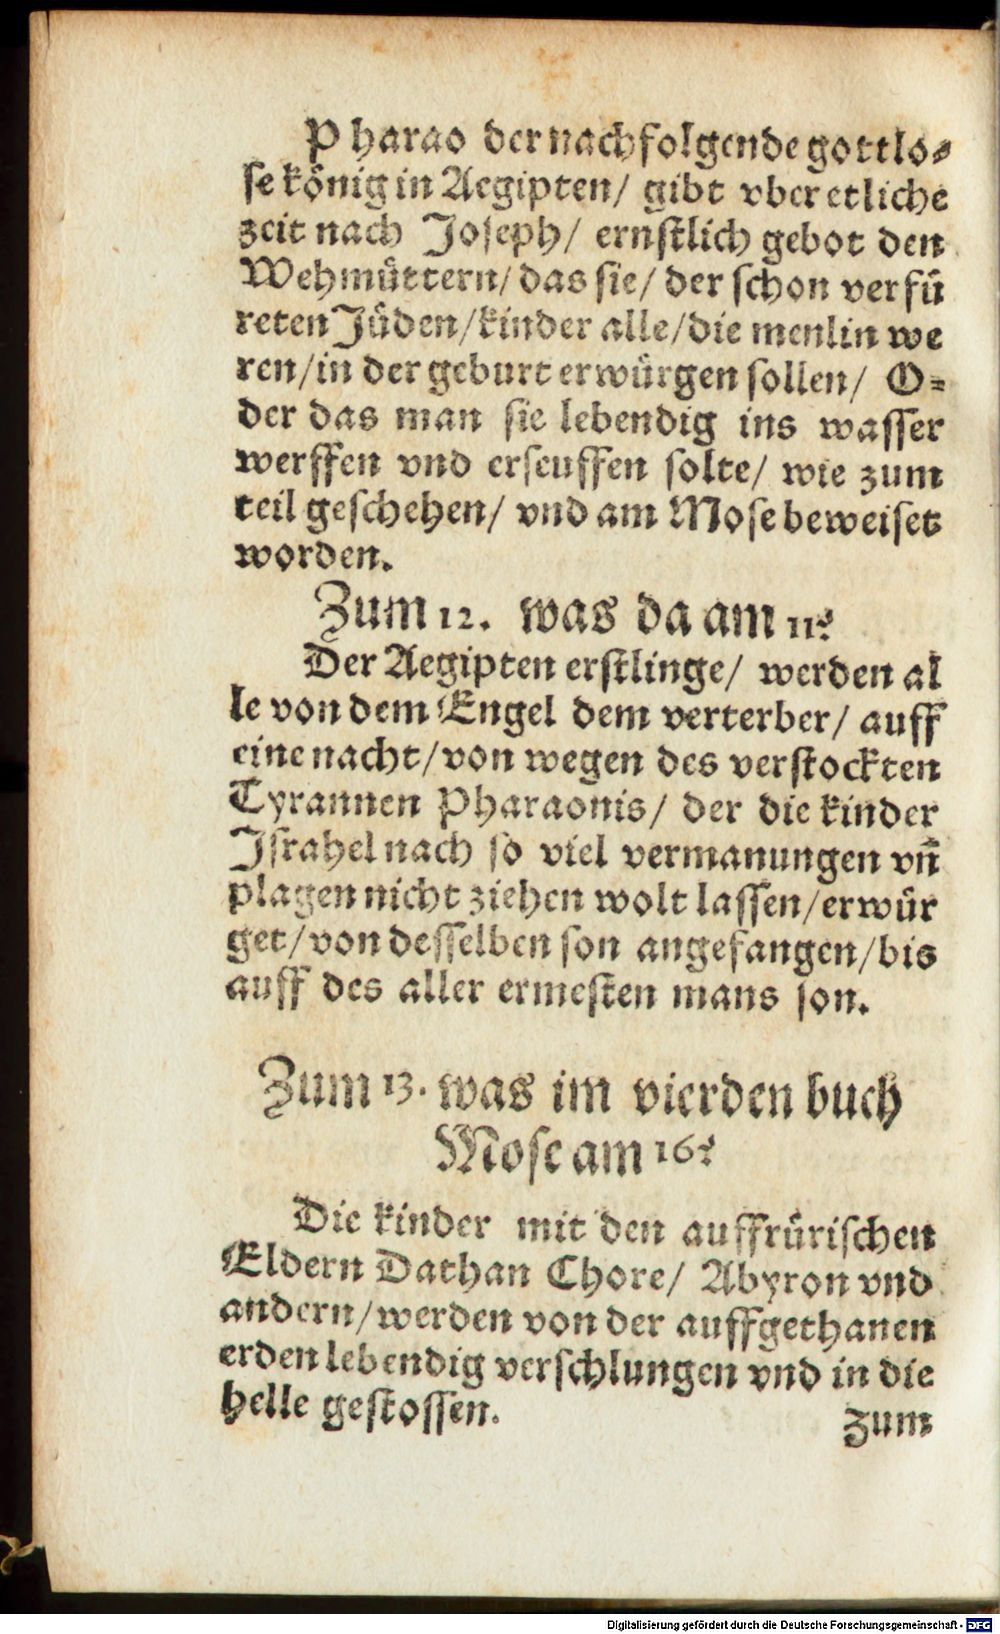 Pharao der nachfolgende gottlo⸗
se könig in Aegipten/ gibt vber etliche
zeit nach Joseph/ ernstlich gebot den
Wehmüttern/ das sie/ der schon verfü
reten Jüden/ kinder alle/ die menlin we
ren/ in der geburt erwürgen sollen/ O⸗
der das man sie lebendig ins wasser
werffen vnd erseuffen solte/ wie zum
teil geschehen/ vnd am Mose beweiset
worden.
Zum 12. was da am 11?
Der Aegipten erstlinge/ werden al
le von dem Engel dem verterber/ auff
eine nacht/ von wegen des verstockten
Tyrannen Pharaonis/ der die kinder
Jsrahel nach so viel vermanungen vñ
plagen nicht ziehen wolt lassen/ erwür
get/ von desselben son angefangen/ bis
auff des aller ermesten mans son.
Zum 13. was im vierden buch
Mose am 16?
Die kinder mit den auffrürischen
Eldern Dathan Chore/ Abyron vnd
andern/ werden von der auffgethanen
erden lebendig verschlungen vnd in die
helle gestossen.
Zum
Digitalisierung gefördert durch die Deutsche Forschungsgemeinschaft - DFG